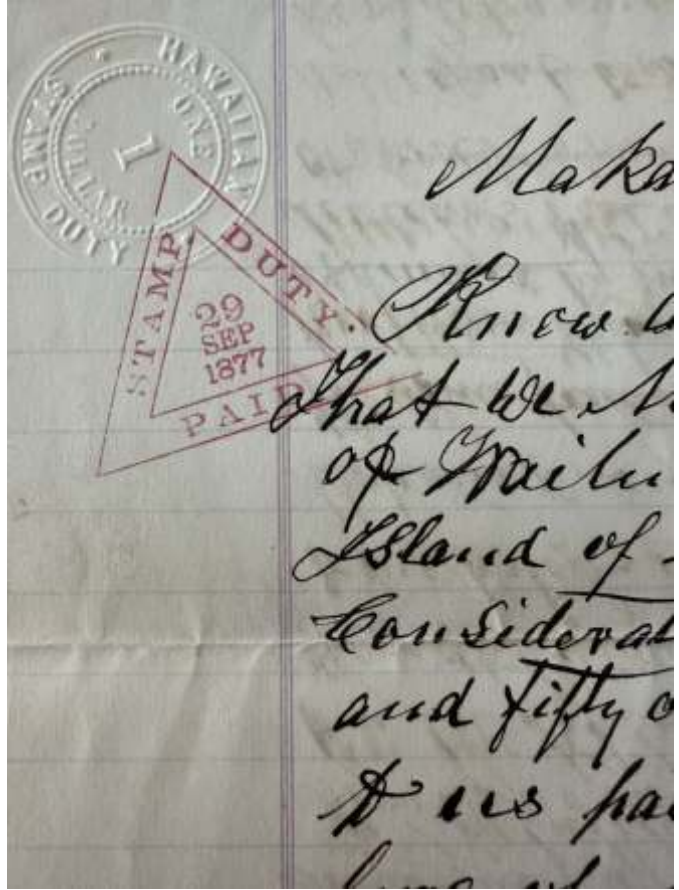 HAWAIIAN
STAMP DUTY
ONE
1
DOLLAR
STAMP DUTY.
29
SEP
1877
PAID
Maka
Know
That we
of Wailu
Island of
Considerat
and fifty
to us pai